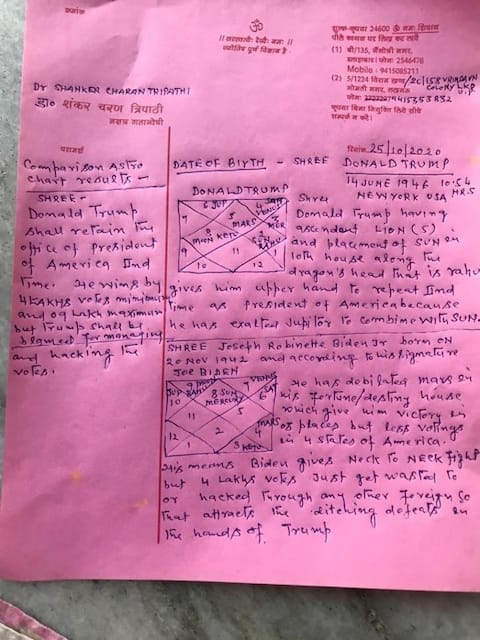 क्रमांक
ॐ
।। सरस्वत्यै: दैव्यै: नम: ।।
ज्योतिष पूर्ण विज्ञान है
शुल्क-कृपया 24600 ॐ नमः शिवाय
(1) बी/135,
इलाहाबाद। फोन: 2546478
Mobile : 9415085211
(2) 5/1224 विराम खण्ड/2C/158 VRINDAVN
गोमती नगर, लखनऊ COLONY LKO
फोन: 9415353832 U.P.
सम्पर्क न करें।
DY SHANKER CHARAN TRIPATHI
डा० शंकर चरण त्रिपाठी
परामर्श
दिनांक 25/10/2020
Comparison Astro
Chart results -
SHREE -
Donald Trump
shall retain the
office of President
of America IInd
Time. He wins by
4 LAKHS votes minimum
and 09 Lakh maximum
but Trump shall be
blamed for managing
and hacking the
votes.
DATE OF BIRTH - SHREE DONALD TRUMP
14 JUNE 1946 10:54 HRS
NEW YORK USA
DONALD TRUMP
6 JUP
4 SAT
VENUS
7
5
MARS
3
MER
8
MOON KETU
2
SUN
RAHU
9
11
1
10
12
Shree
Donald Trump having
ascendent LION (5)
and placement of SUN in
10th house along the
dragon's head that is rahu
gives him upper hand to repeat IInd
Time as President of America because
he has exalted Jupitor to combine with SUN.
SHREE Joseph Robinette Biden Jr born ON
20 NOV 1942 and according to his Signature
JOE BIDEN
9
JUP
RAHU
10
8 SUN
MERCURY
7 VENUS
6 SAT
11
5
12
2
MARS
4
1
3 KETU
He has debilated mars in
his fortune/desting house
which give him victory in
08 places but less votings
in 4 states of America.
This means Biden gives Neck to NECK fight
but 4 Lakhs votes Just get wasted to
or hacked through any other foreign So
that attracts the ditching defeats in
the hands of Trump